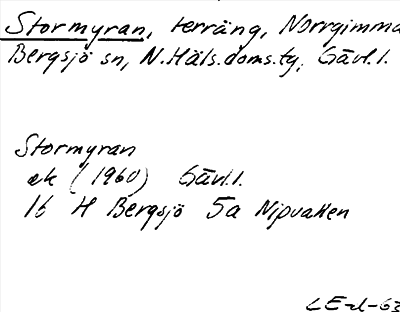 Stormyran, terräng, Norrgimma
Bergsjö sn, N.Häls.doms.tg, Gävl.l.
Stormyran
ek (1960) Gävl.l.
16 H Bergsjö 5a Nipvallen
LE-d-63